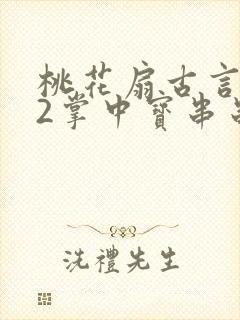 桃花扇古言
2掌中寶串
洗禮先生